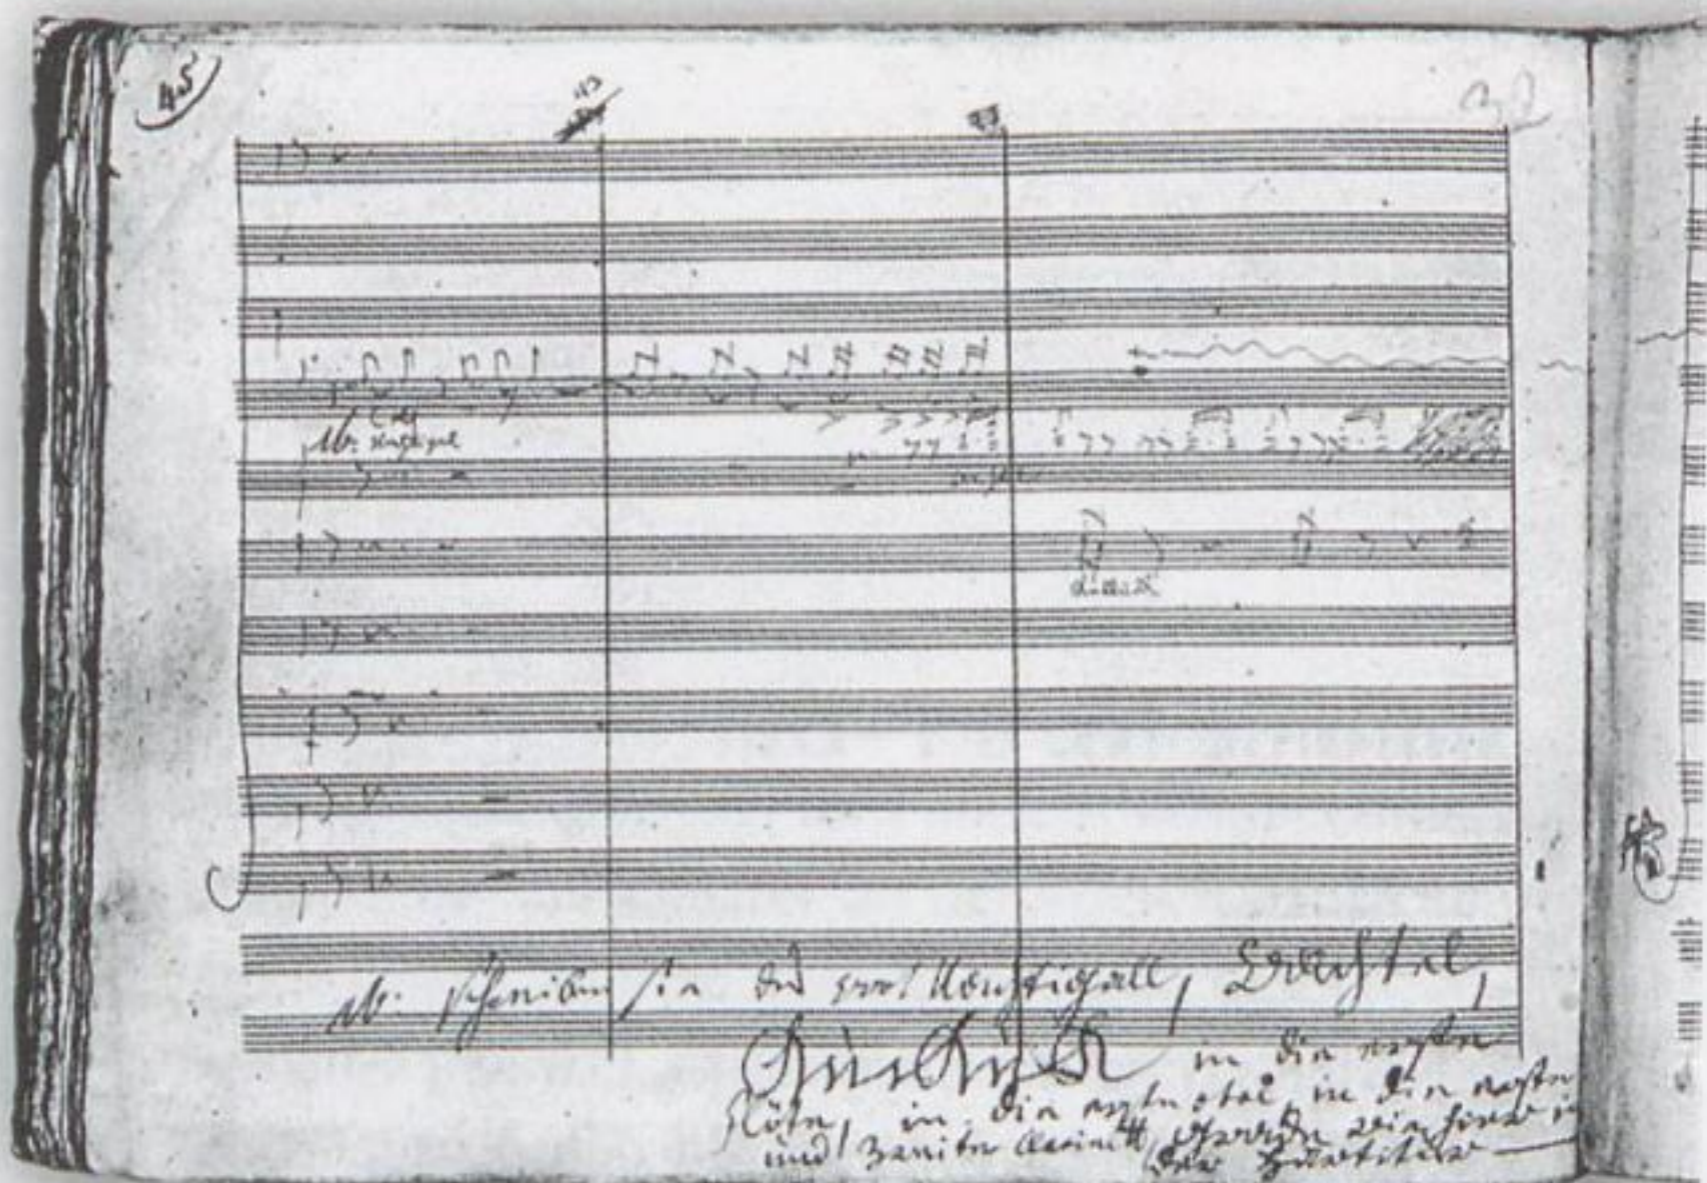 45
Nb: Nachtigall
Kukuk
Nb: schreiben sie das wort Nachtigall, Wachtel,
KuKuK in die erste
Flöte, in die erste oboe, in die erste
und zweite Clarinett gerade wie hier in
der Partitur